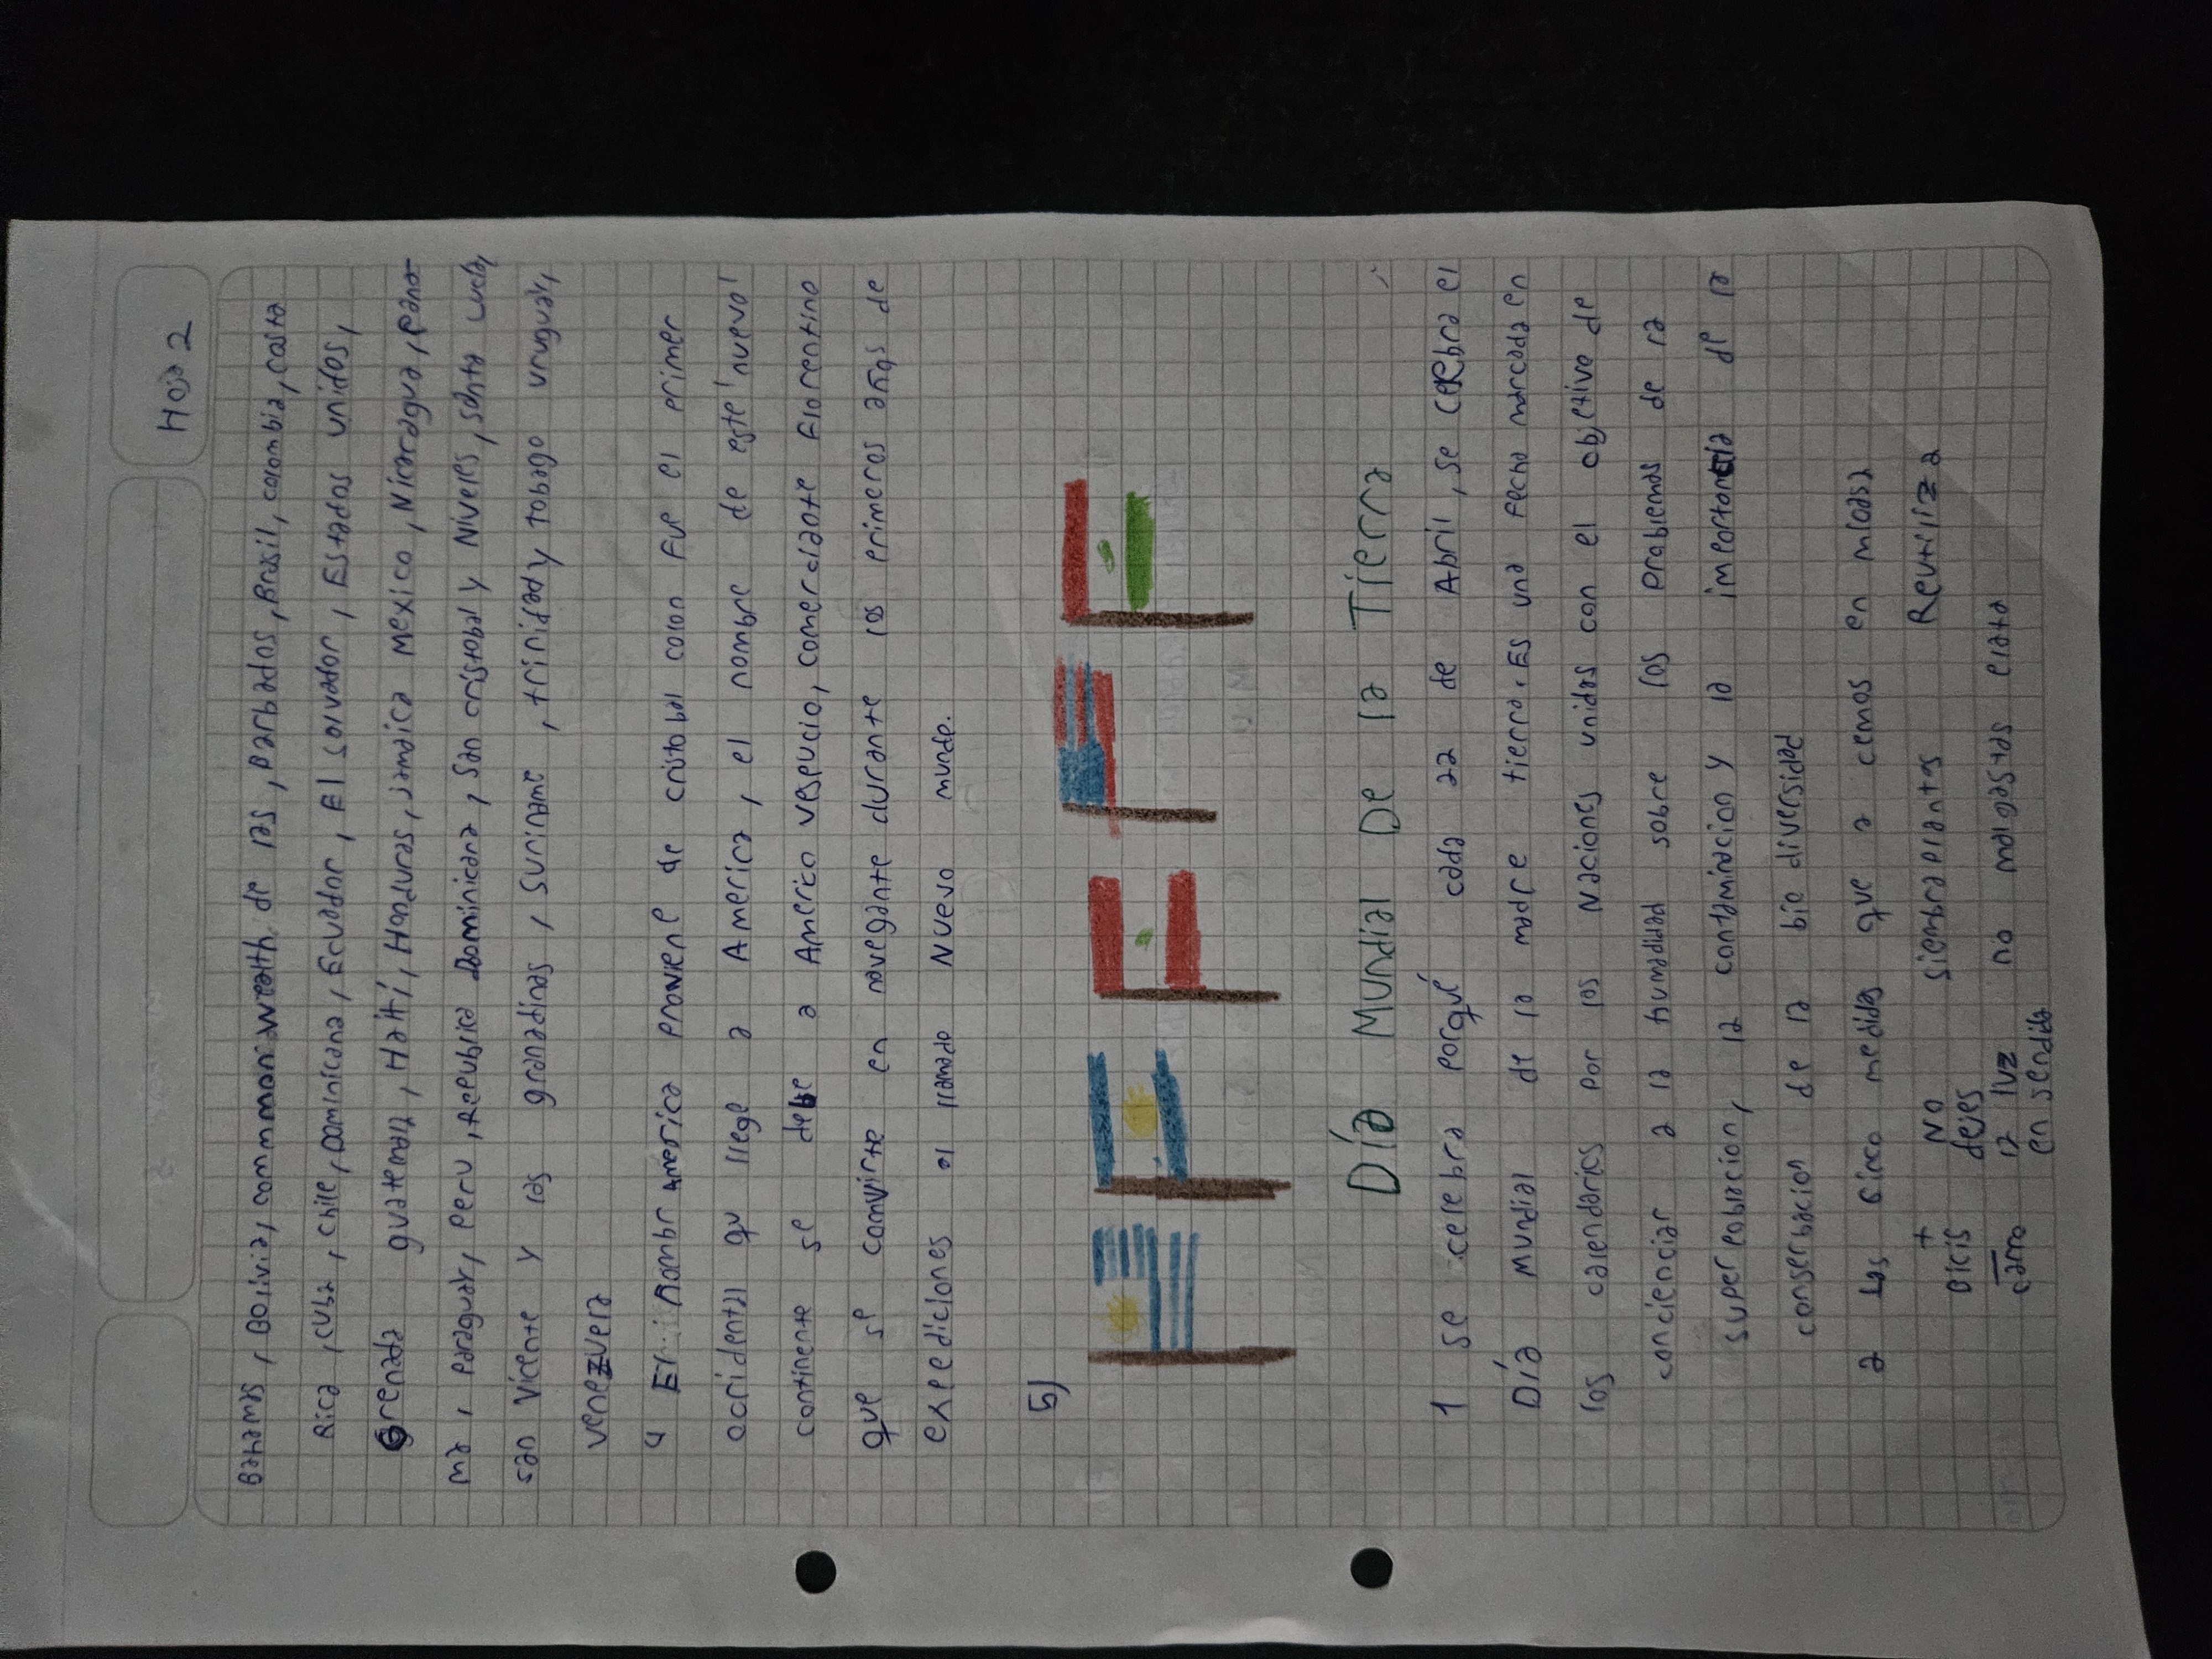 Hoja 2
Bahamas, Bolivia, commonwealth de las, barbados, Brasil, colombia, costa
Rica, cuba, chile, Dominicana, Ecuador, El salvador, Estados unidos,
Grenada guatemala, Haití, Honduras, Jamaica Mexico, Nicaragua, pana-
ma, paraguay, peru, Republica Dominicana, San cristobal y Niveles, santa lucia,
san Vicente y las granadinas, suriname, trinidady tobago uruguay,
venezuela
4 El nombr America proviene de cristobal colon Fue el primer
occidental qu llege a America, el nombre de este 'nuevo'
continente se debe a Americo vespucio, comerciante Florentino
que se convirte en navegante durante los primeros años de
expediciones al llamado Nuevo munde.
5)
Día Mundial De la Tierra
1 se celebra porqué cada 22 de Abril, se celebra el
Día Mundial de la madre tierra. Es una fecha marcada en
los calendarios por las Naciones unidas con el objetivo de
concienciar a la humadidad sobre los problemas de la
superpoblacion, la contaminacion y la importancia de la
conserbacion de la bio diversidad
2 Las cinco medidas que a cemos en micasa
+ bicis - carro
No dejes la luz en sendida
siembra plantas
no malgastas plata
Reutiliza